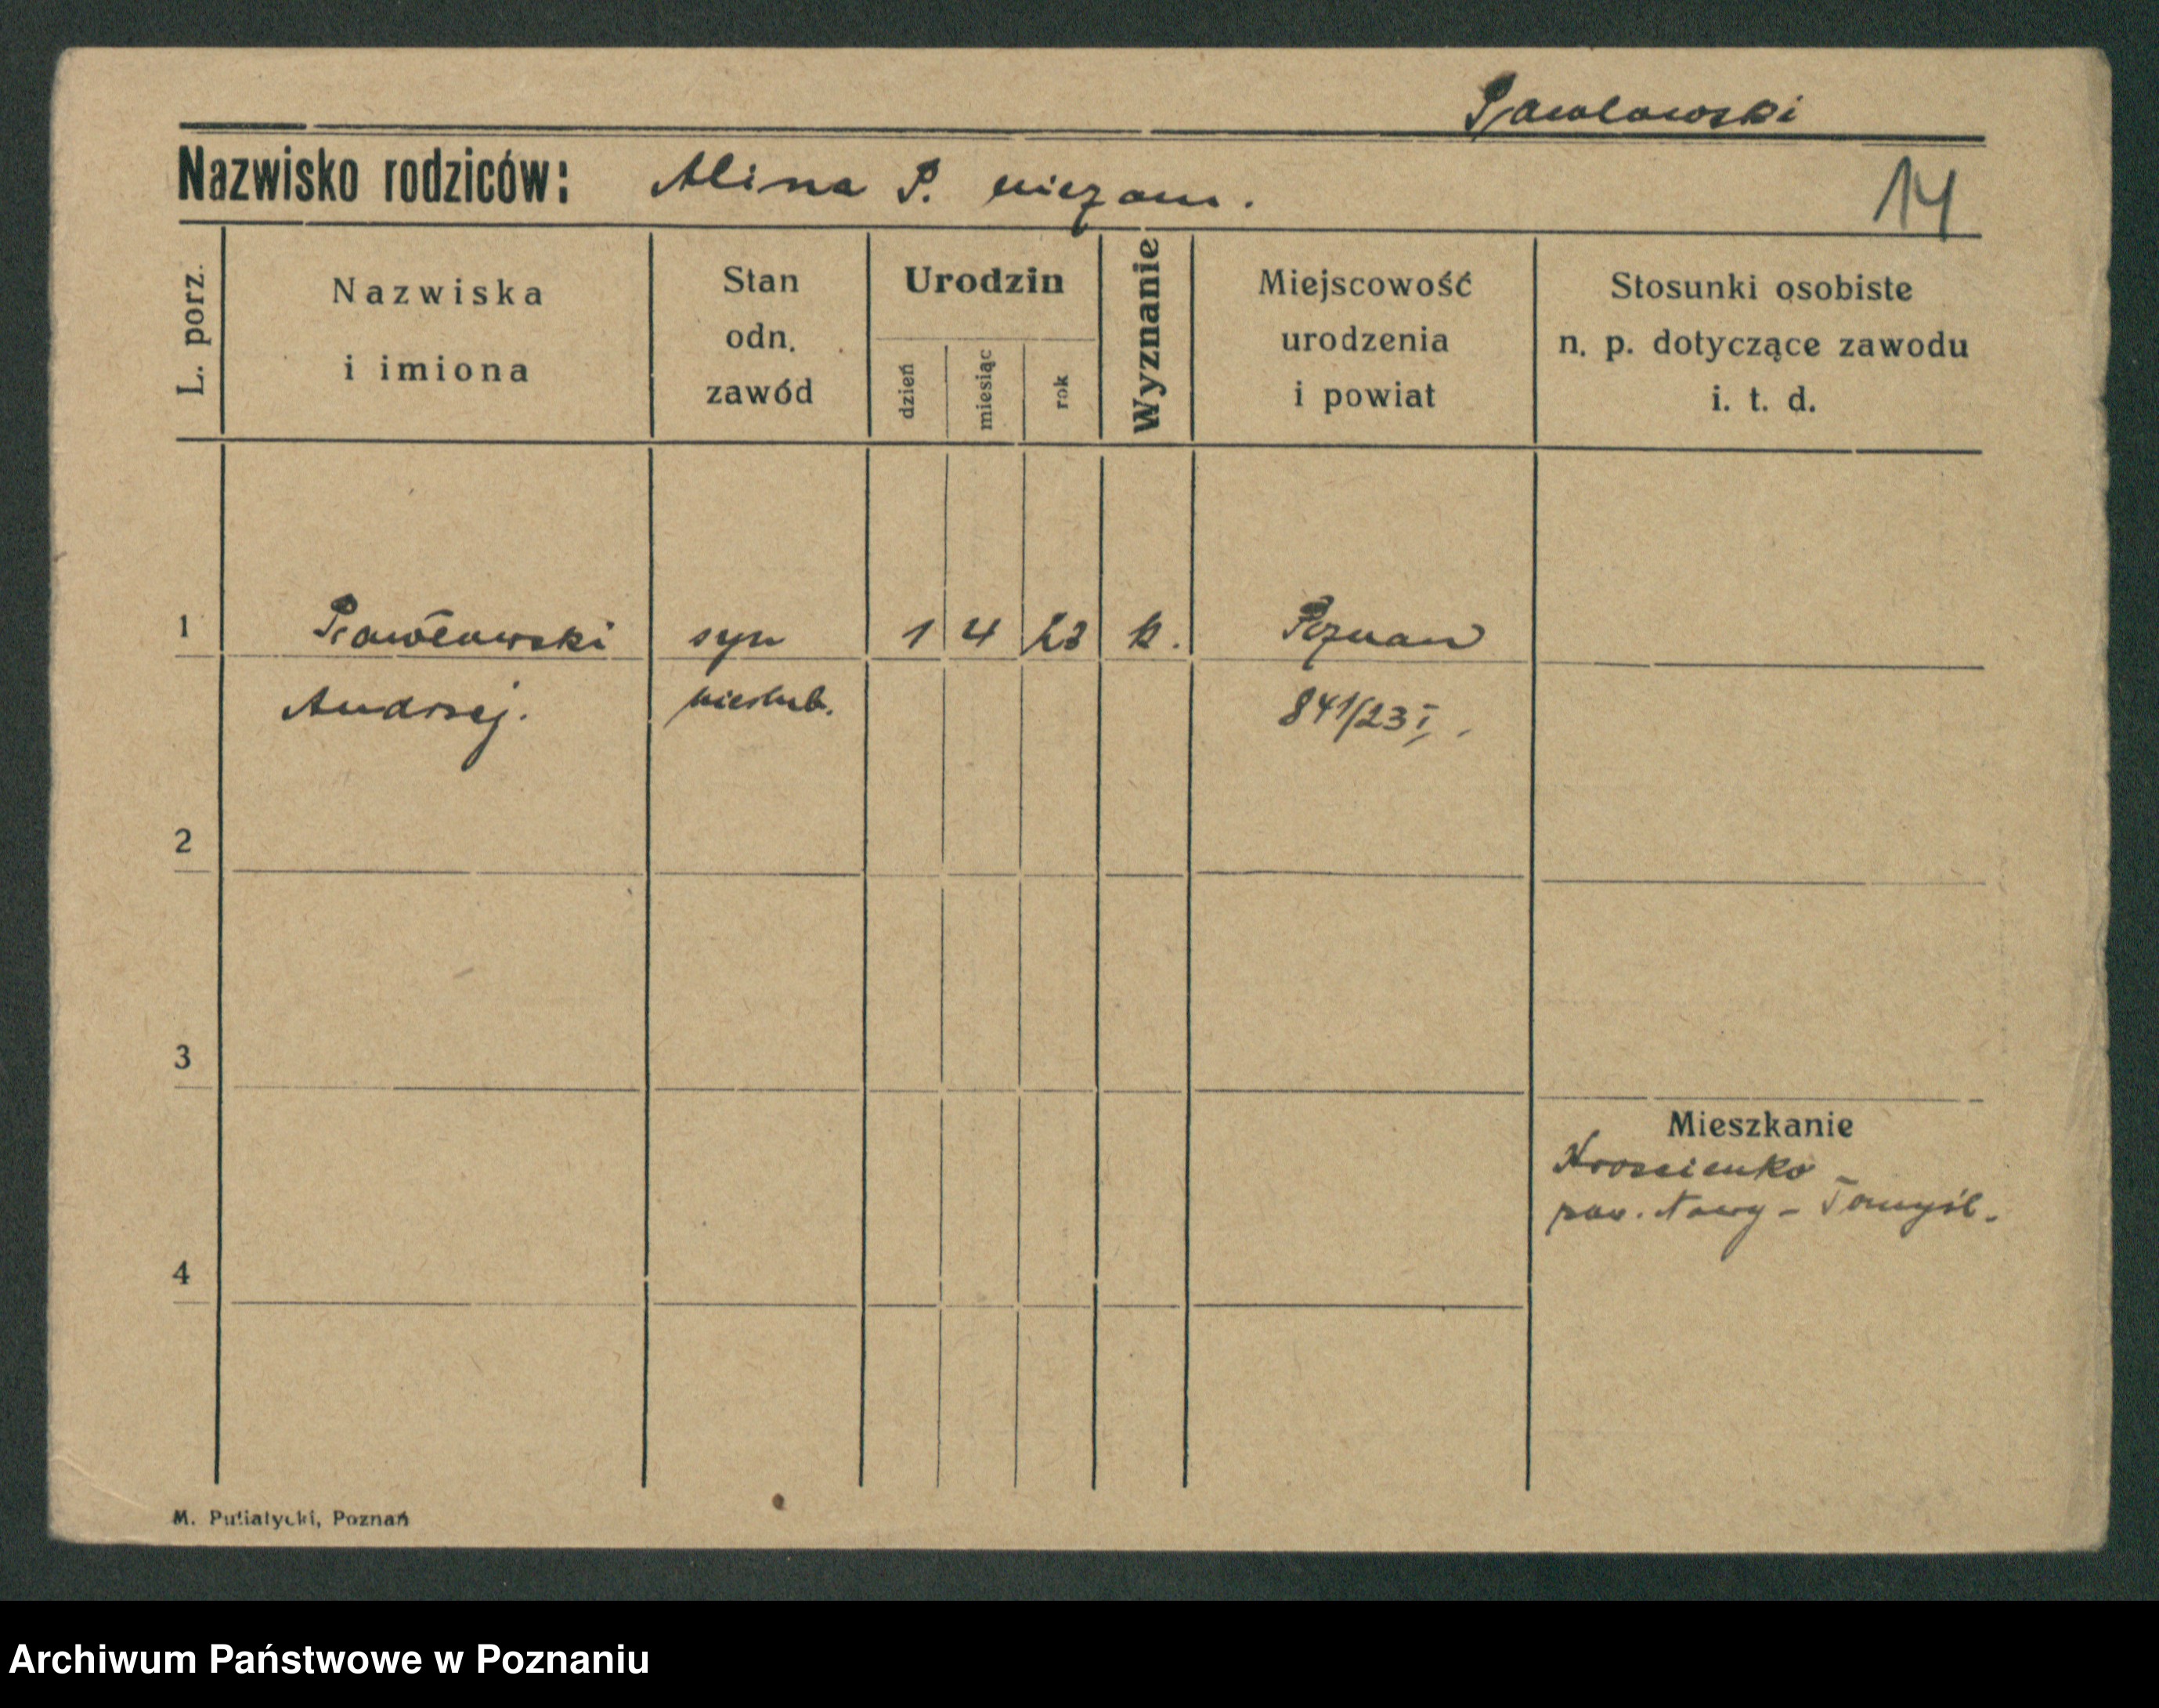 Pawlowski
Nazwisko rodziców: Alina P. niezam.
14
L. porz.
Nazwiska
i imiona
Stan
odn.
zawód
Urodzin
dzień
miesiąc
rok
Wyznanie
Miejscowość
urodzenia
i powiat
Stosunki osobiste
n. p. dotyczące zawodu
i. t. d.
1 Pawłowski syn 1 4 23 k. Poznań
Andrzej. nieslub. 841/23 I.
2
3
Mieszkanie
pow. Nowy-Tomyśl.
4
M. Putiatycki, Poznań
Archiwum Państwowe w Poznaniu